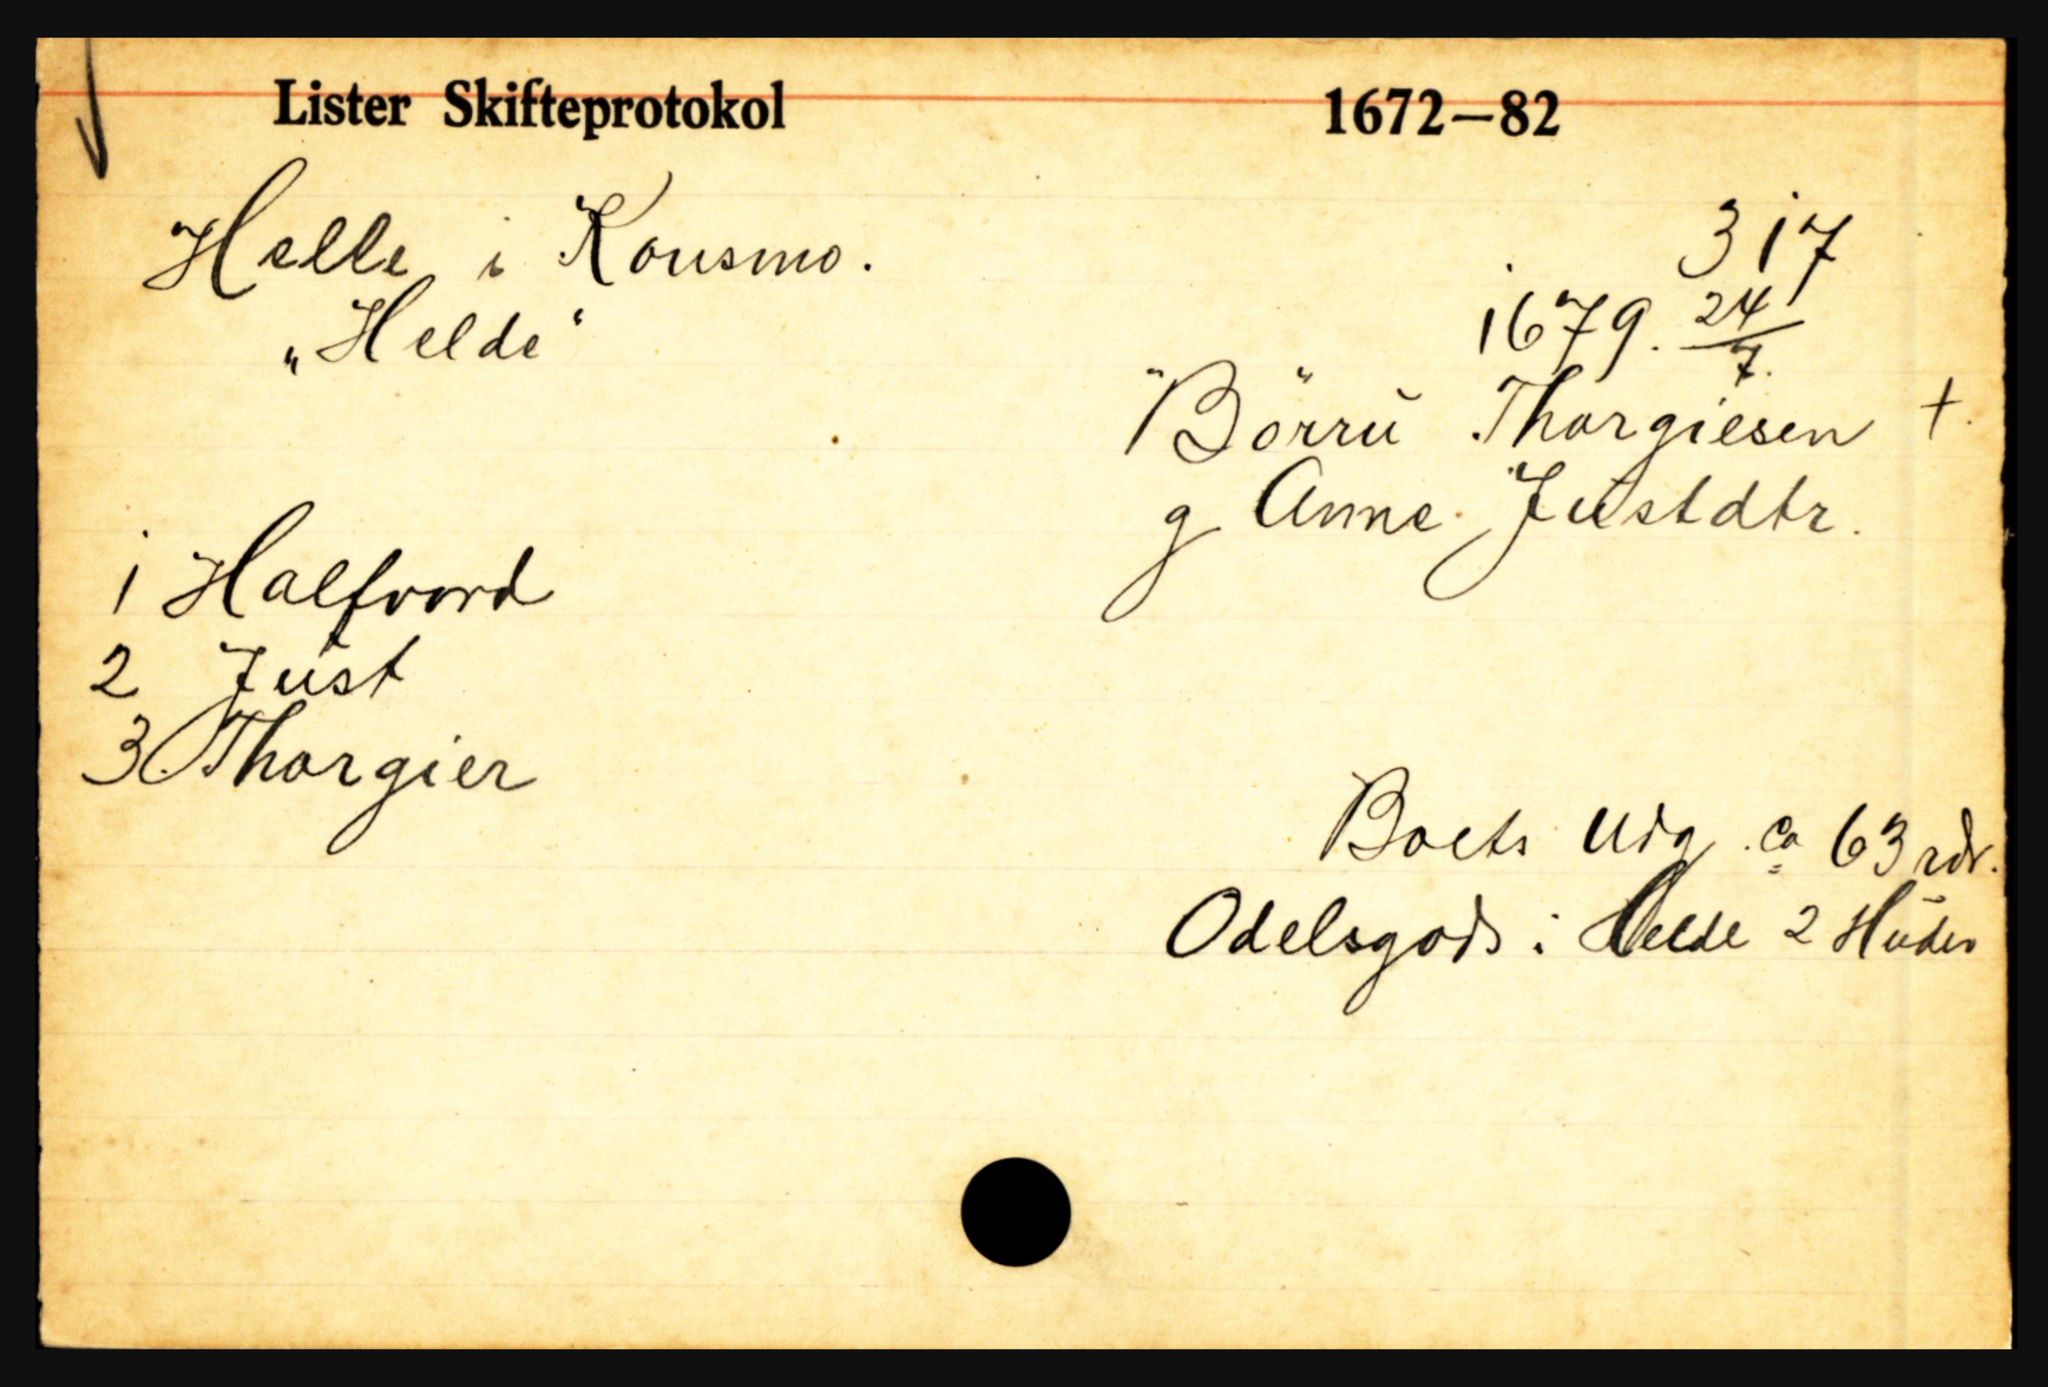 Lister Skifteprotokol 1672—82
Helle i Konsmo. 317
„Helde“ 1679. 24/7.
Börru Thorgiesen +.
g Anne Justdtr.
1 Halfvord
2 Just
3 Thorgier
Boets Udg. ca 63 rdr.
Odelsgods i Helde 2 Huder